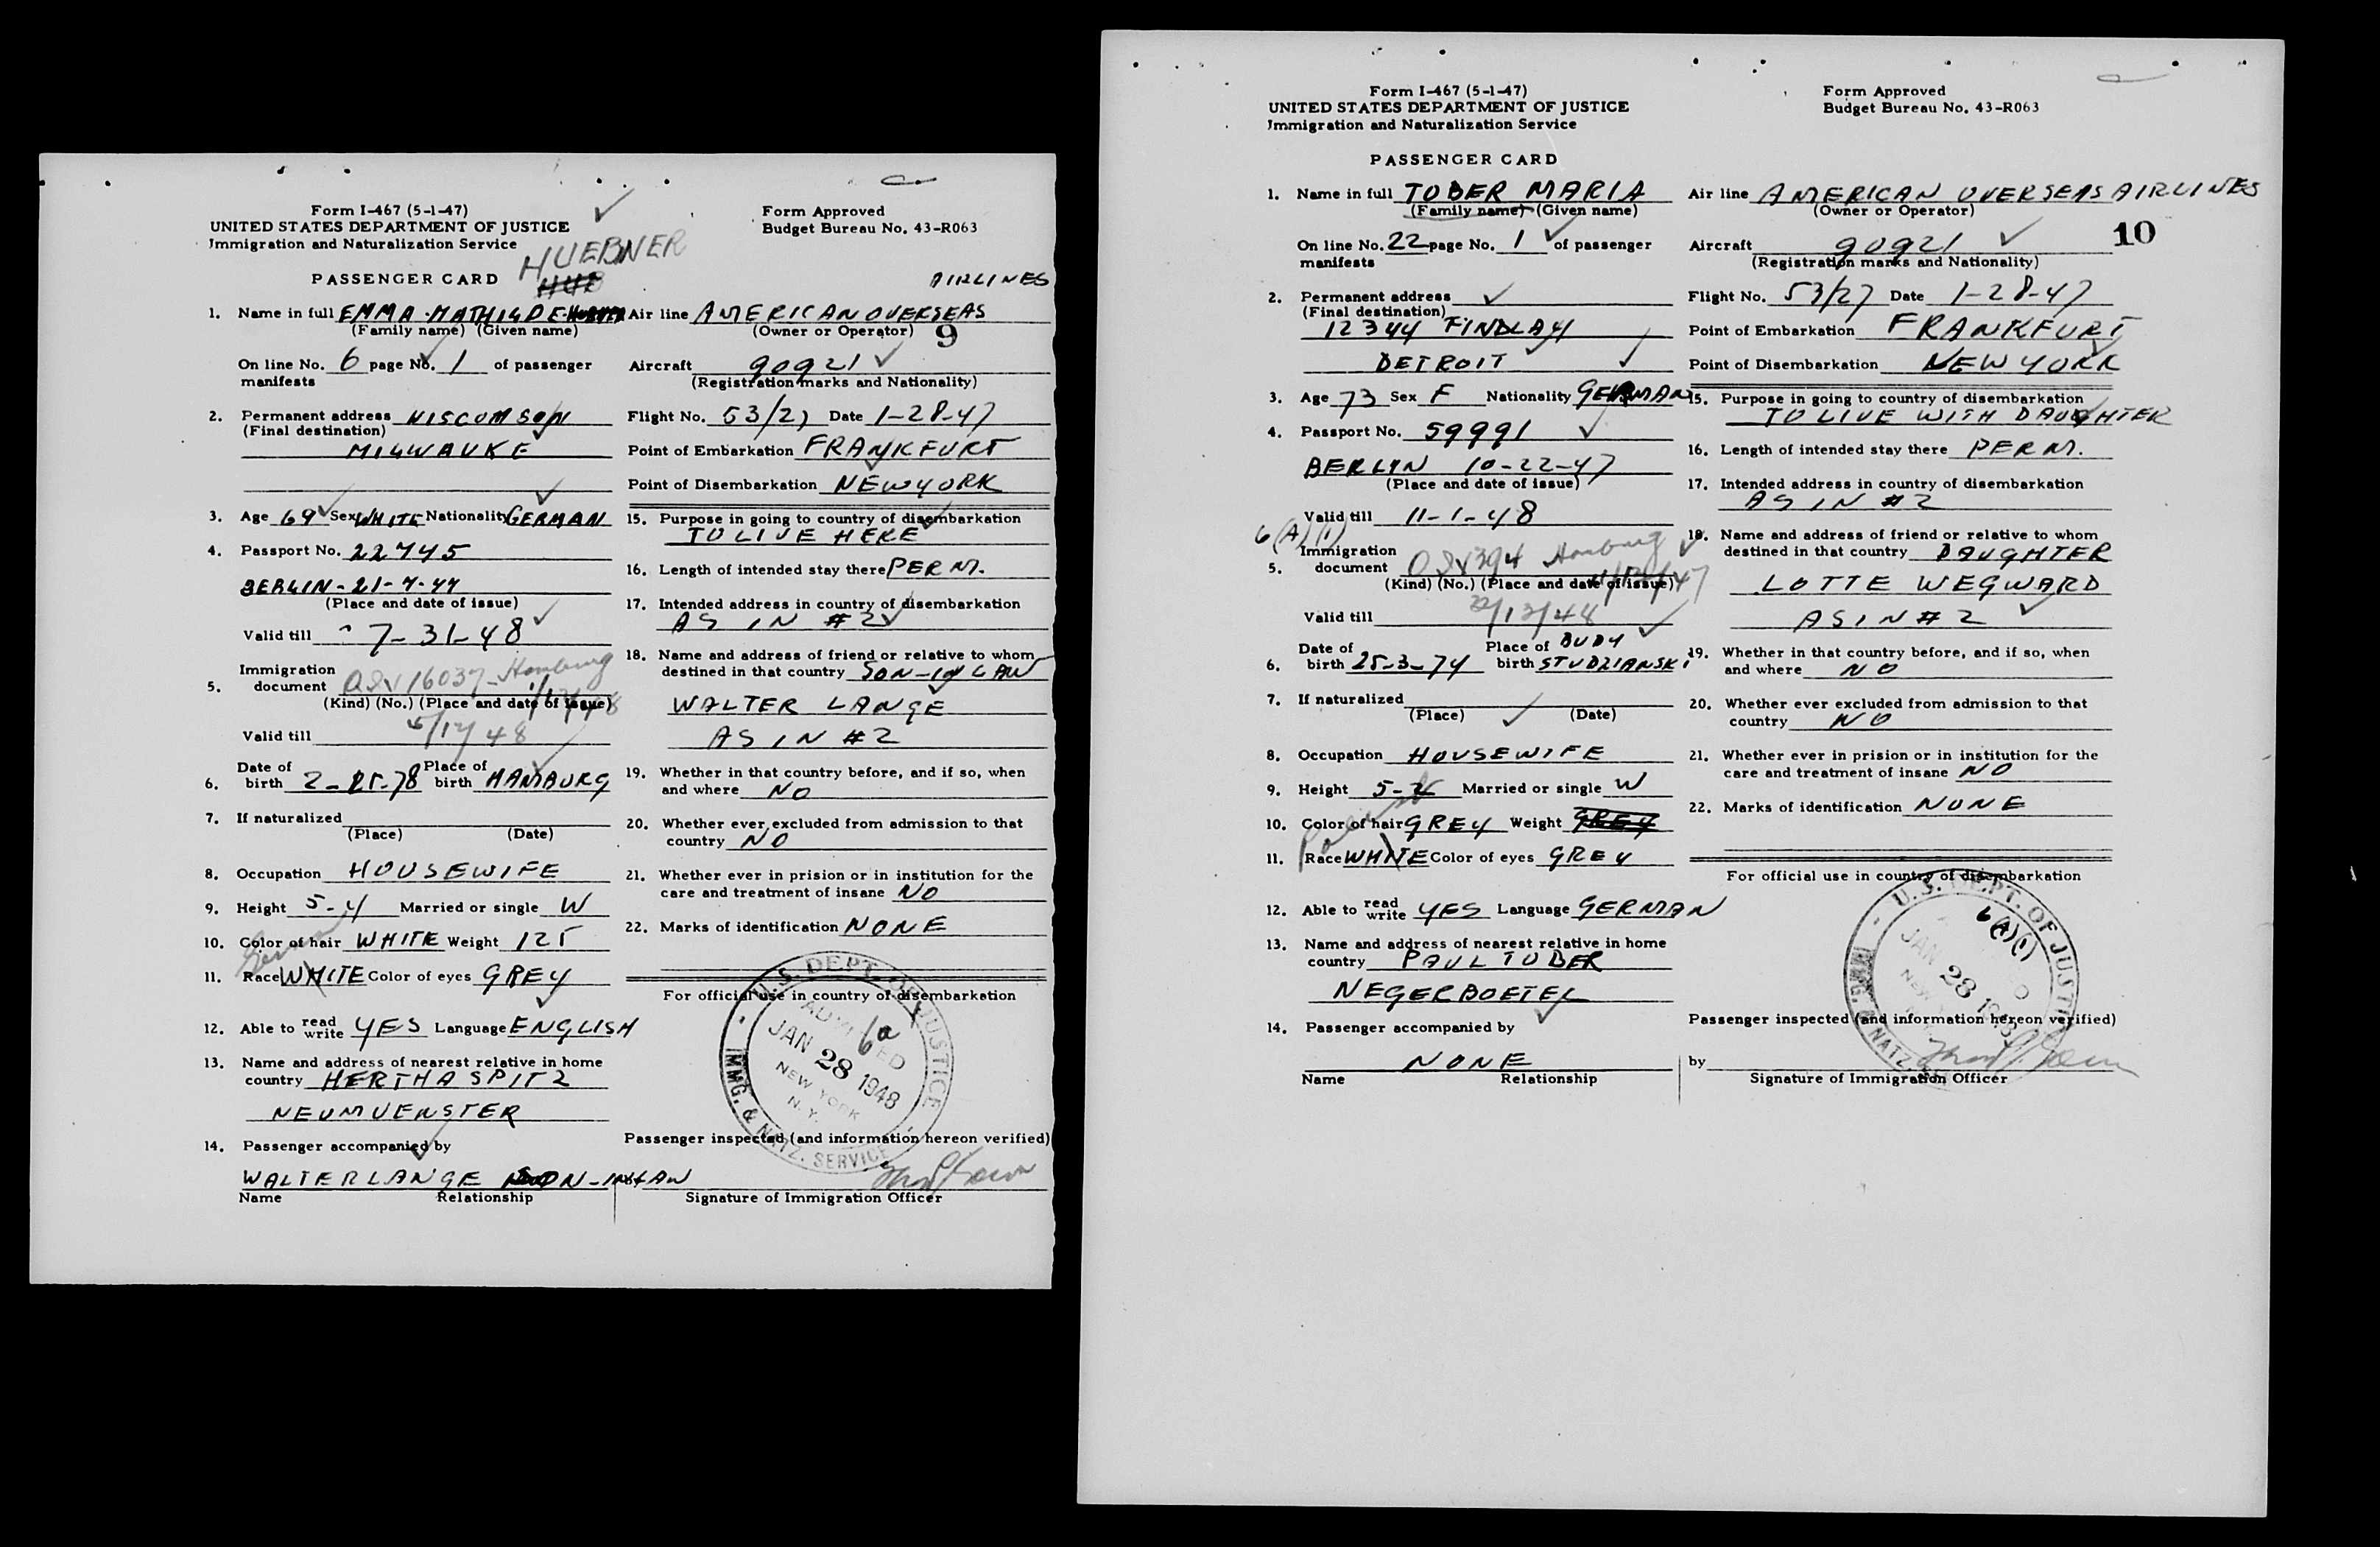 Form I-467 (5-1-47)
UNITED STATES DEPARTMENT OF JUSTICE
Immigration and Naturalization Service
Form Approved
Budget Bureau No. 43-R063
HUEBNER
PASSENGER CARD
AIRLINES
1. Name in full EMMA MATHILDE Air line AMERICAN OVERSEAS
(Family name) (Given name) (Owner or Operator) 9
On line No. 6 page No. 1 of passenger manifests Aircraft 90921
(Registration marks and Nationality)
2. Permanent address WISCOMSON Flight No. 53/27 Date 1-28-47
(Final destination)
MILWAUKE Point of Embarkation FRANKFURT
Point of Disembarkation NEW YORK
3. Age 69 Sex WHITE Nationality GERMAN
15. Purpose in going to country of disembarkation
TO LIVE HERE
4. Passport No. 22745
BERLIN-21-7-47
(Place and date of issue)
16. Length of intended stay there PERM.
17. Intended address in country of disembarkation
AS IN #2
Valid till 7-31-48
18. Name and address of friend or relative to whom
destined in that country SON-IN LAW
WALTER LANGE
AS IN #2
5. Immigration document QIV 16037-Hamburg
(Kind) (No.) (Place and date of issue)
Valid till 5/12/48
6. Date of birth 2-25-78 Place of birth HAMBURG
19. Whether in that country before, and if so, when
and where NO
7. If naturalized
(Place) (Date)
20. Whether ever excluded from admission to that
country NO
8. Occupation HOUSEWIFE
21. Whether ever in prision or in institution for the
care and treatment of insane NO
9. Height 5-4 Married or single W
22. Marks of identification NONE
10. Color of hair WHITE Weight 125
German
11. Race WHITE Color of eyes GREY
For official use in country of disembarkation
12. Able to read write YES Language ENGLISH
13. Name and address of nearest relative in home
country HERTHA SPITZ
NEUMUENSTER
U.S. DEPT. OF JUSTICE
ADMITTED
6a
JAN 28 1948
NEW YORK
N.Y.
IMMG. & NATZ. SERVICE
14. Passenger accompanied by
WALTER LANGE SON-IN LAW
Name Relationship
Passenger inspected (and information hereon verified)
Signature of Immigration Officer
Form I-467 (5-1-47)
UNITED STATES DEPARTMENT OF JUSTICE
Immigration and Naturalization Service
Form Approved
Budget Bureau No. 43-R063
PASSENGER CARD
1. Name in full TOBER MARIA Air line AMERICAN OVERSEAS AIRLINES
(Family name) (Given name) (Owner or Operator)
On line No. 22 page No. 1 of passenger manifests Aircraft 90921 10
(Registration marks and Nationality)
2. Permanent address Flight No. 53/27 Date 1-28-47
(Final destination)
12344 FINDLAY Point of Embarkation FRANKFURT
DETROIT Point of Disembarkation NEW YORK
3. Age 73 Sex F Nationality GERMAN
15. Purpose in going to country of disembarkation
TO LIVE WITH DAUGHTER
4. Passport No. 59991
BERLIN 10-22-47
(Place and date of issue)
16. Length of intended stay there PERM.
17. Intended address in country of disembarkation
AS IN #2
Valid till 11-1-48
6(A)(1)
18. Name and address of friend or relative to whom
destined in that country DAUGHTER
LOTTE WEGWARD
AS IN #2
5. Immigration document QIV394 Hamburg
(Kind) (No.) (Place and date of issue)
Valid till
6. Date of birth 25-3-74 Place of birth BUDY STUDZIANSKI
19. Whether in that country before, and if so, when
and where NO
7. If naturalized
(Place) (Date)
20. Whether ever excluded from admission to that
country NO
8. Occupation HOUSEWIFE
21. Whether ever in prision or in institution for the
care and treatment of insane NO
9. Height Married or single W
22. Marks of identification NONE
10. Color of hair GREY Weight
11. Race WHITE Color of eyes GREY
For official use in country of disembarkation
12. Able to read write YES Language GERMAN
13. Name and address of nearest relative in home
country PAUL TOBER
NEGERBOETEL
U.S. DEPT. OF JUSTICE
6(A)(1)
JAN 28 1948
IMMG. & NATZ.
14. Passenger accompanied by
NONE
Name Relationship
Passenger inspected (and information hereon verified)
by
Signature of Immigration Officer